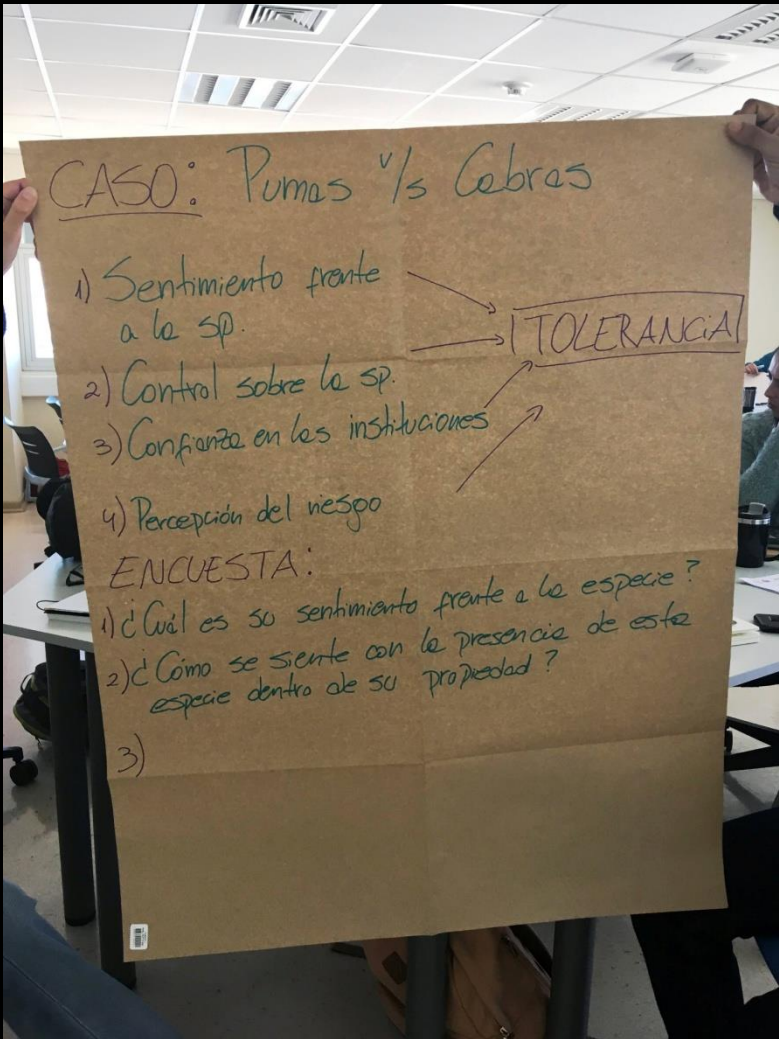 CASO: Pumas v/s Cabras
1) Sentimiento frente
a la sp.
TOLERANCIA
2) Control sobre la sp.
3) Confianza en las instituciones
4) Percepción del riesgo
ENCUESTA:
1) ¿Cuál es su sentimiento frente a la especie?
2) ¿Cómo se siente con la presencia de esta
especie dentro de su propiedad?
3)